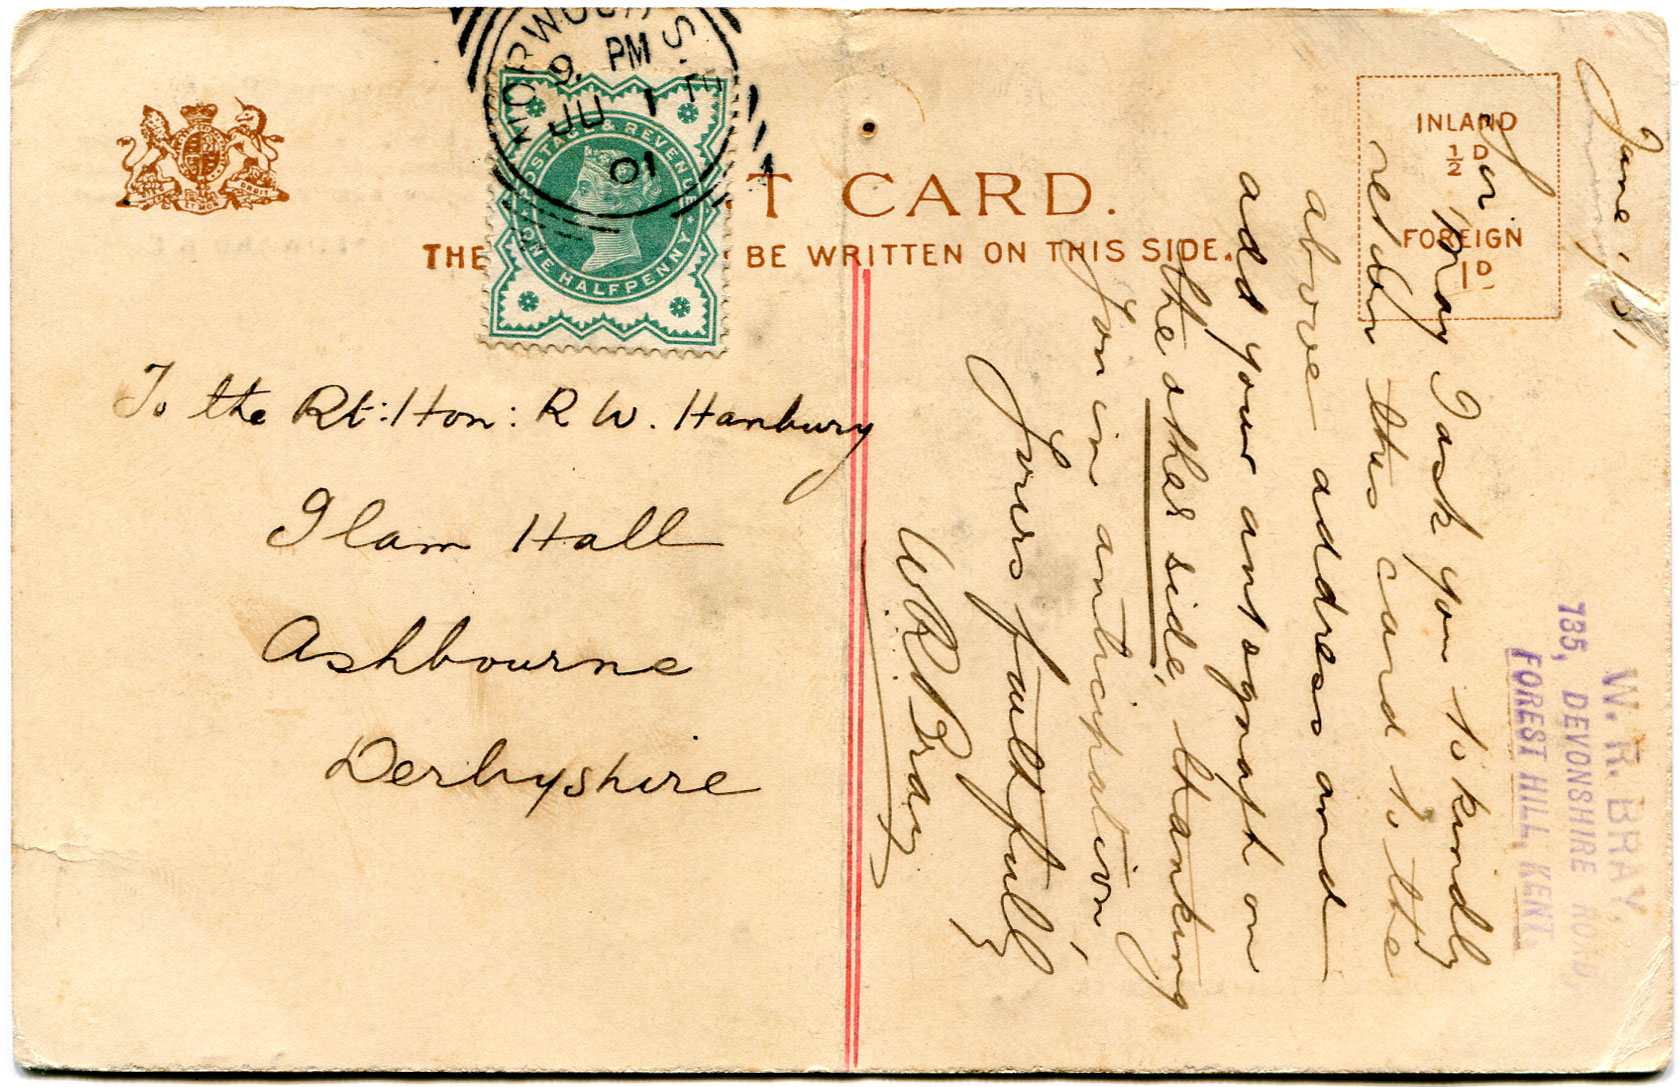 NORWOOD S.E
9. PM
JU 1
01
POSTAGE & REVENUE
ONE HALFPENNY
T CARD.
THE BE WRITTEN ON THIS SIDE.
INLAND
½ D
FOREIGN
1D
To the Rt: Hon: R W. Hanbury
Ilam Hall
Ashbourne
Derbyshire
W. R. BRAY,
135, DEVONSHIRE ROAD,
FOREST HILL, KENT.
June 1/01
Sir
May I ask you to kindly
return this card to the
above address and
add your autograph on
the other side, thanking
you in anticipation,
Yours faithfully
W R Bray